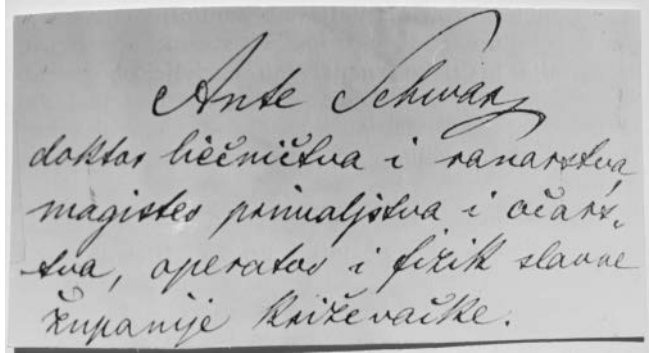 Ante Schwarz
doktor liečničtva i ranarstva,
magister primaljstva i očars-
tva, operator i fizik slavne
županije Križevačke.